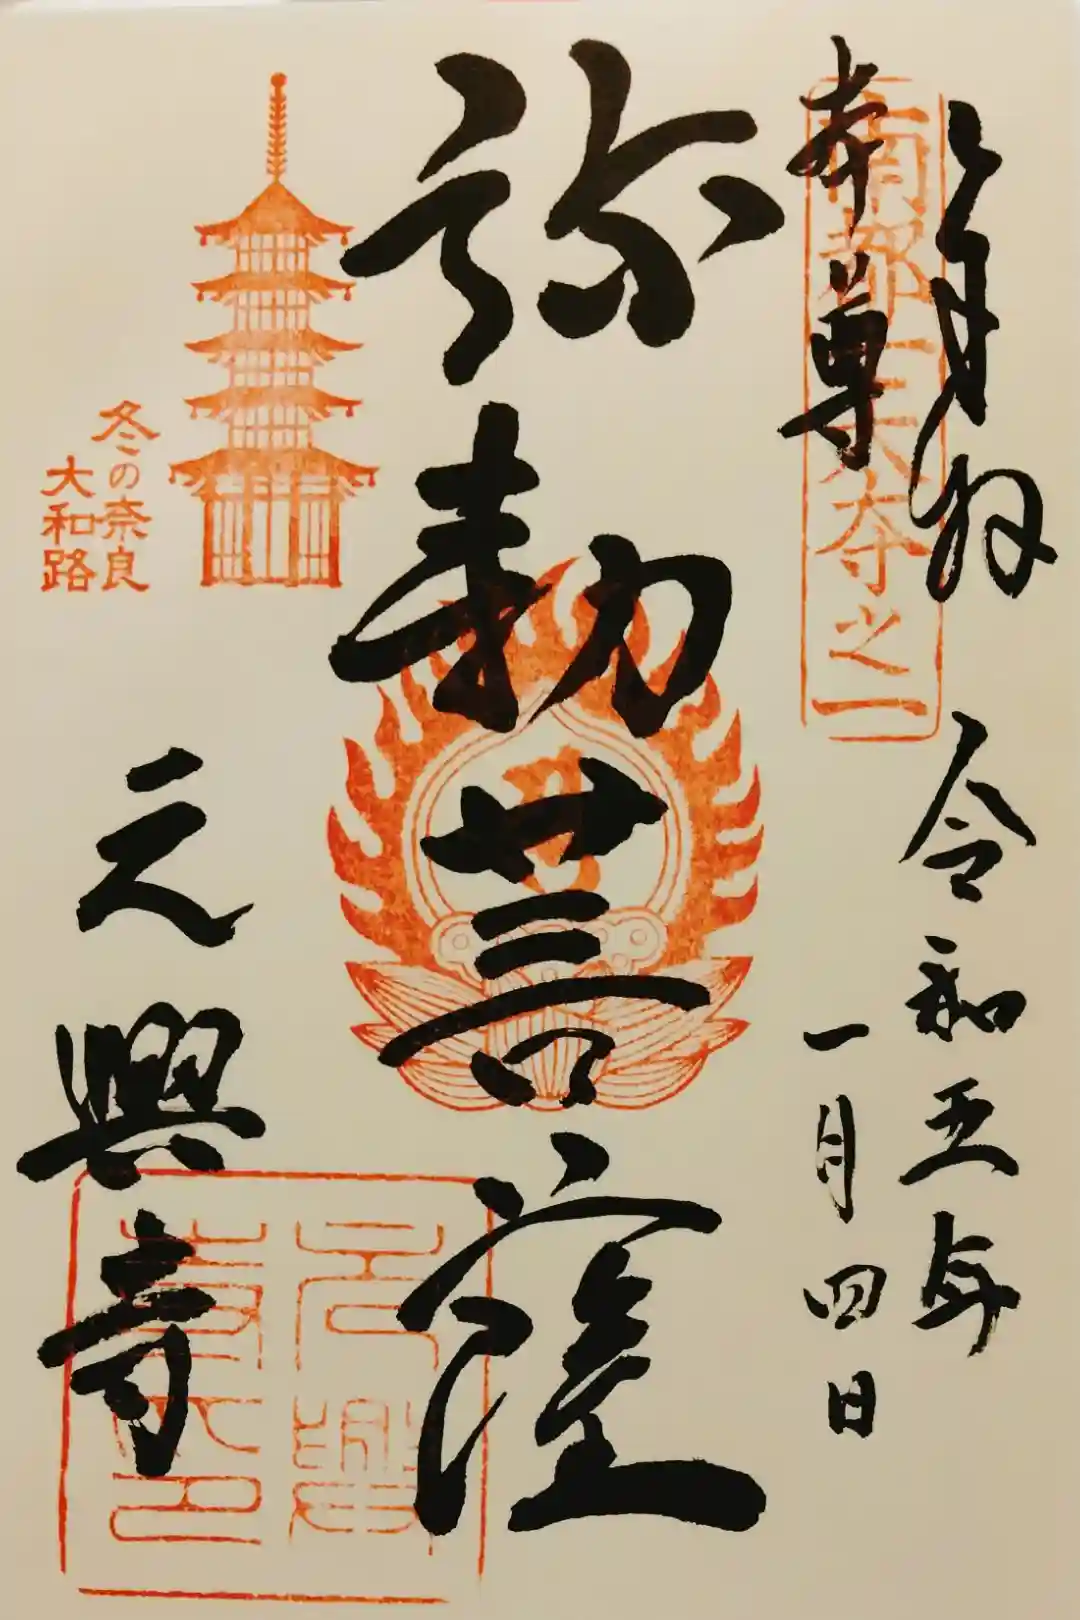 奉拝
令和五年
一月四日
本尊
南都七大寺之一
弥勒菩薩
冬の奈良
大和路
元興寺
元興
寺印